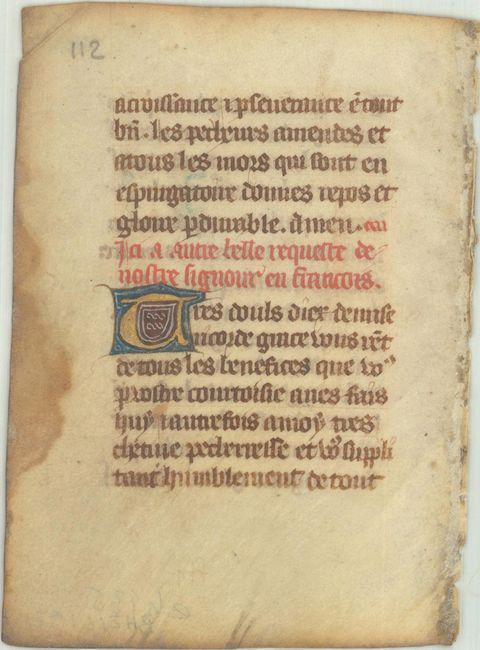 112
acroissance ⁊ pseuerance ētout
bn̄. les pecheurs amendes et
atous les mors qui sont en
espurgatoire donnes repos et
gloire pdurable. amen.
Ici a autre belle requeste de
nostre signour en francois.
Tres douls diex de mise
ricorde grace vous rēt
de tous les benefices que vo9
p vostre courtoisie aues fais
huy ⁊ autrefois a moy tres
chetiue pecherresse et vo9 suppli
tant humblement de tout